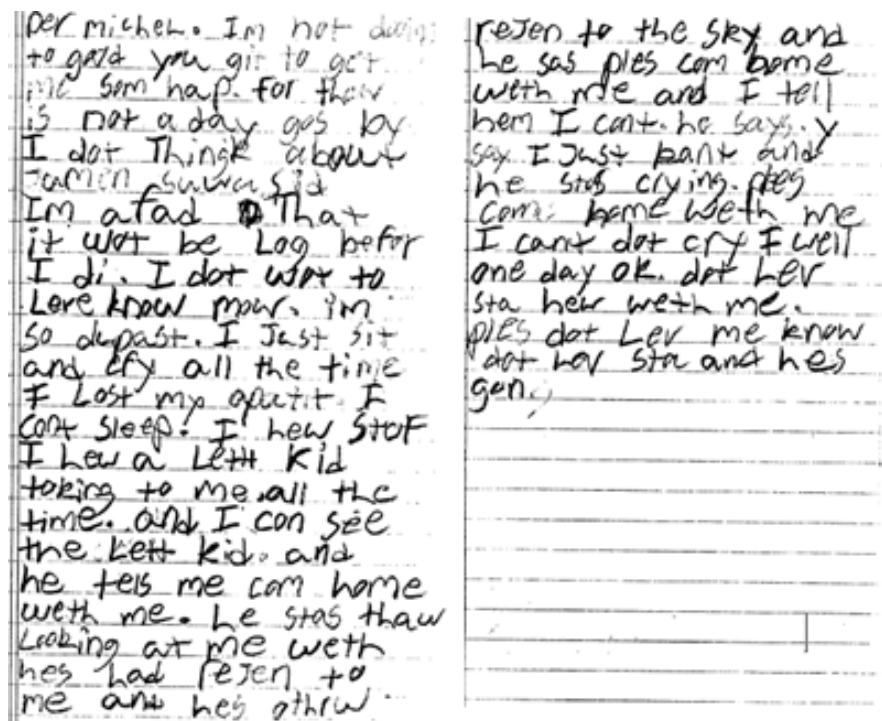 Der michel. Im not doing
to gold you git to get
me som hap. for thew
is not a day gos by
I dot Thingk about
Im afad That
it wot be Log befor
I di. I dot wot to
Leve know mow. im
so depast. I Just sit
and cry all the time
I Lost my aputit I
cont sleep. I hew stof
I hew a Lett kid
toking to me.all the
time. and I con see
the Lett kid. and
he tels me com home
weth me. he stas thaw
Looking at me weth
hes had rejen to
me and hes othrw
rejen to the sky and
he sas ples com home
weth me and I tell
hem I cant. he says. y
say I Just kant and
he stas crying. ples
come home weth me
I cant dot cry I well
one day ok. dot Lev
sta hew weth me.
ples dot Lev me know
dot Lev sta and hes
gon.